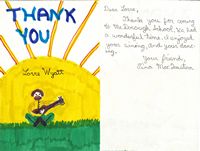 THANK
YOU
Lorre Wyatt
Dear Lorre,
Thank you for coming
to McDonough School. We had
a wonderful time. I enjoyed
your singing, and your danc-
ing.
Your friend,
Tina